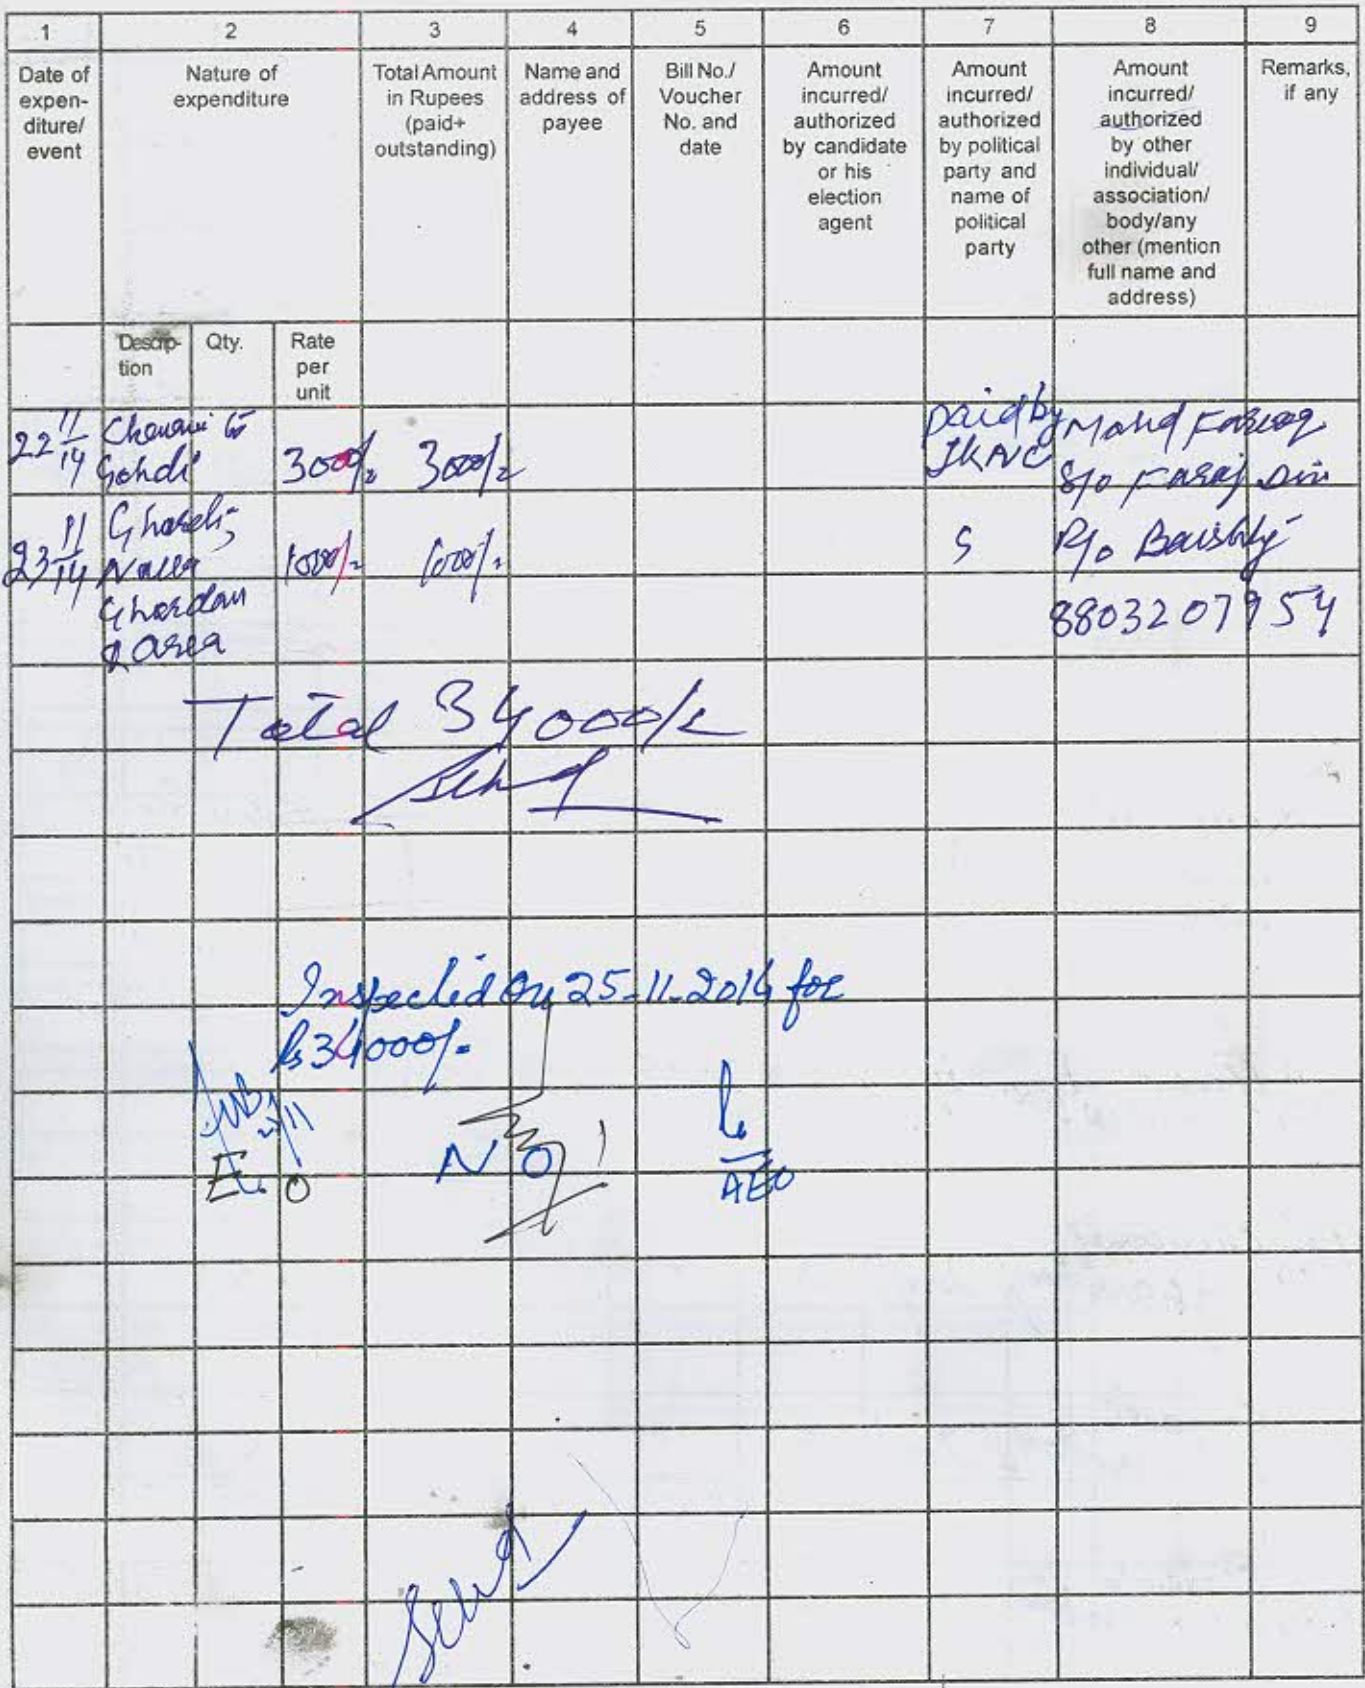 1 2 3 4 5 6 7 8 9
Date of expen-diture/ event
Nature of expenditure
Total Amount in Rupees (paid+ outstanding)
Name and address of payee
Bill No./ Voucher No. and date
Amount incurred/ authorized by candidate or his election agent
Amount incurred/ authorized by political party and name of political party
Amount incurred/ authorized by other individual/ association/ body/any other (mention full name and address)
Remarks, if any
Descrip-tion
Qty.
Rate per unit
22 11/14 3000/- 3000/- Paid by JKNC Mohd Farooq
S/o Din
23 11/14 1000/- 1000/- R/o
8803207954
Total 34000/-
Inspected on 25-11-2014 for
Rs 34000/-
E. O N O AEO